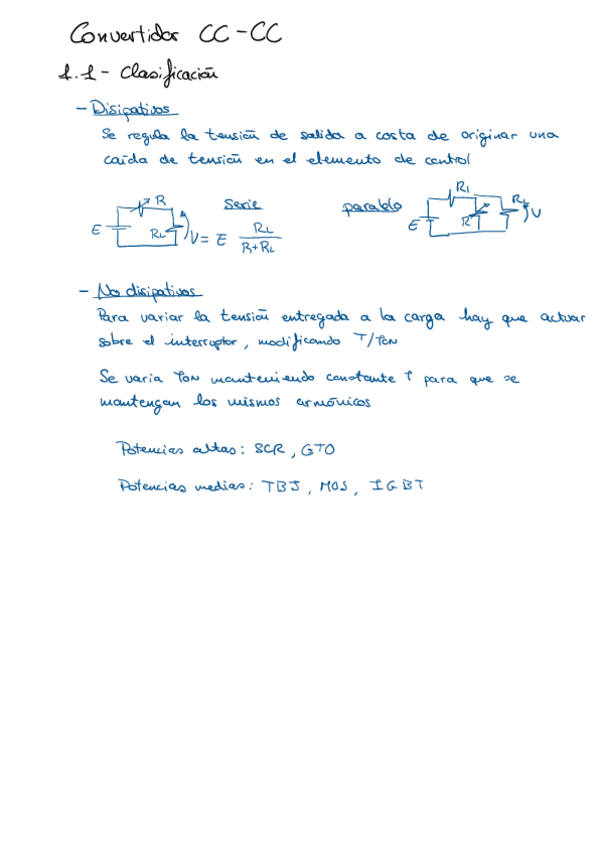 Convertidor CC-CC
1.1- Clasificación
- Disipativos
Se regula la tensión de salida a costa de originar una
caída de tensión en el elemento de control
R
Serie
E
RL
V = E RL / R+RL
paralelo
R1
RL
E
R
V
- No disipativos
Para variar la tensión entregada a la carga hay que actuar
sobre el interruptor, modificando T/TON
Se varia TON manteniendo constante T para que se
mantengan los mismos armónicos
Potencias altas: SCR, GTO
Potencias medias: TBJ, MOS, IGBT